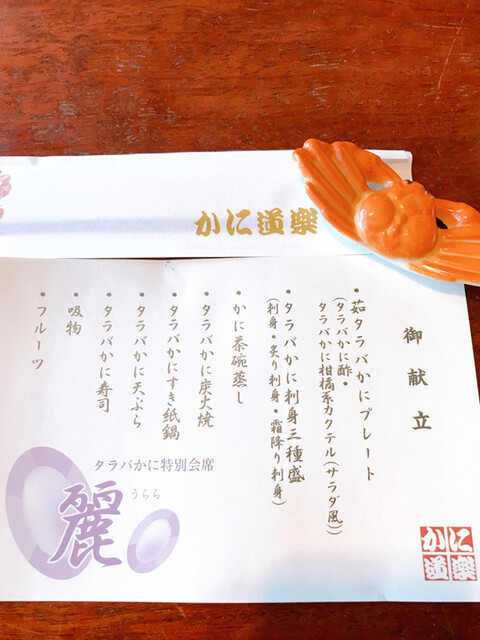 かに道楽
御献立
・茹タラバかにプレート
(タラバかに酢・
タラバかに柑橘系カクテル(サラダ風))
・タラバかに刺身三種盛
(刺身・炙り刺身・霜降り刺身)
・かに茶碗蒸し
・タラバかに炭火焼
・タラバかにすき紙鍋
・タラバかに天ぷら
・タラバかに寿司
・吸物
・フルーツ
タラバかに特別会席
うらら
麗
かに
道楽